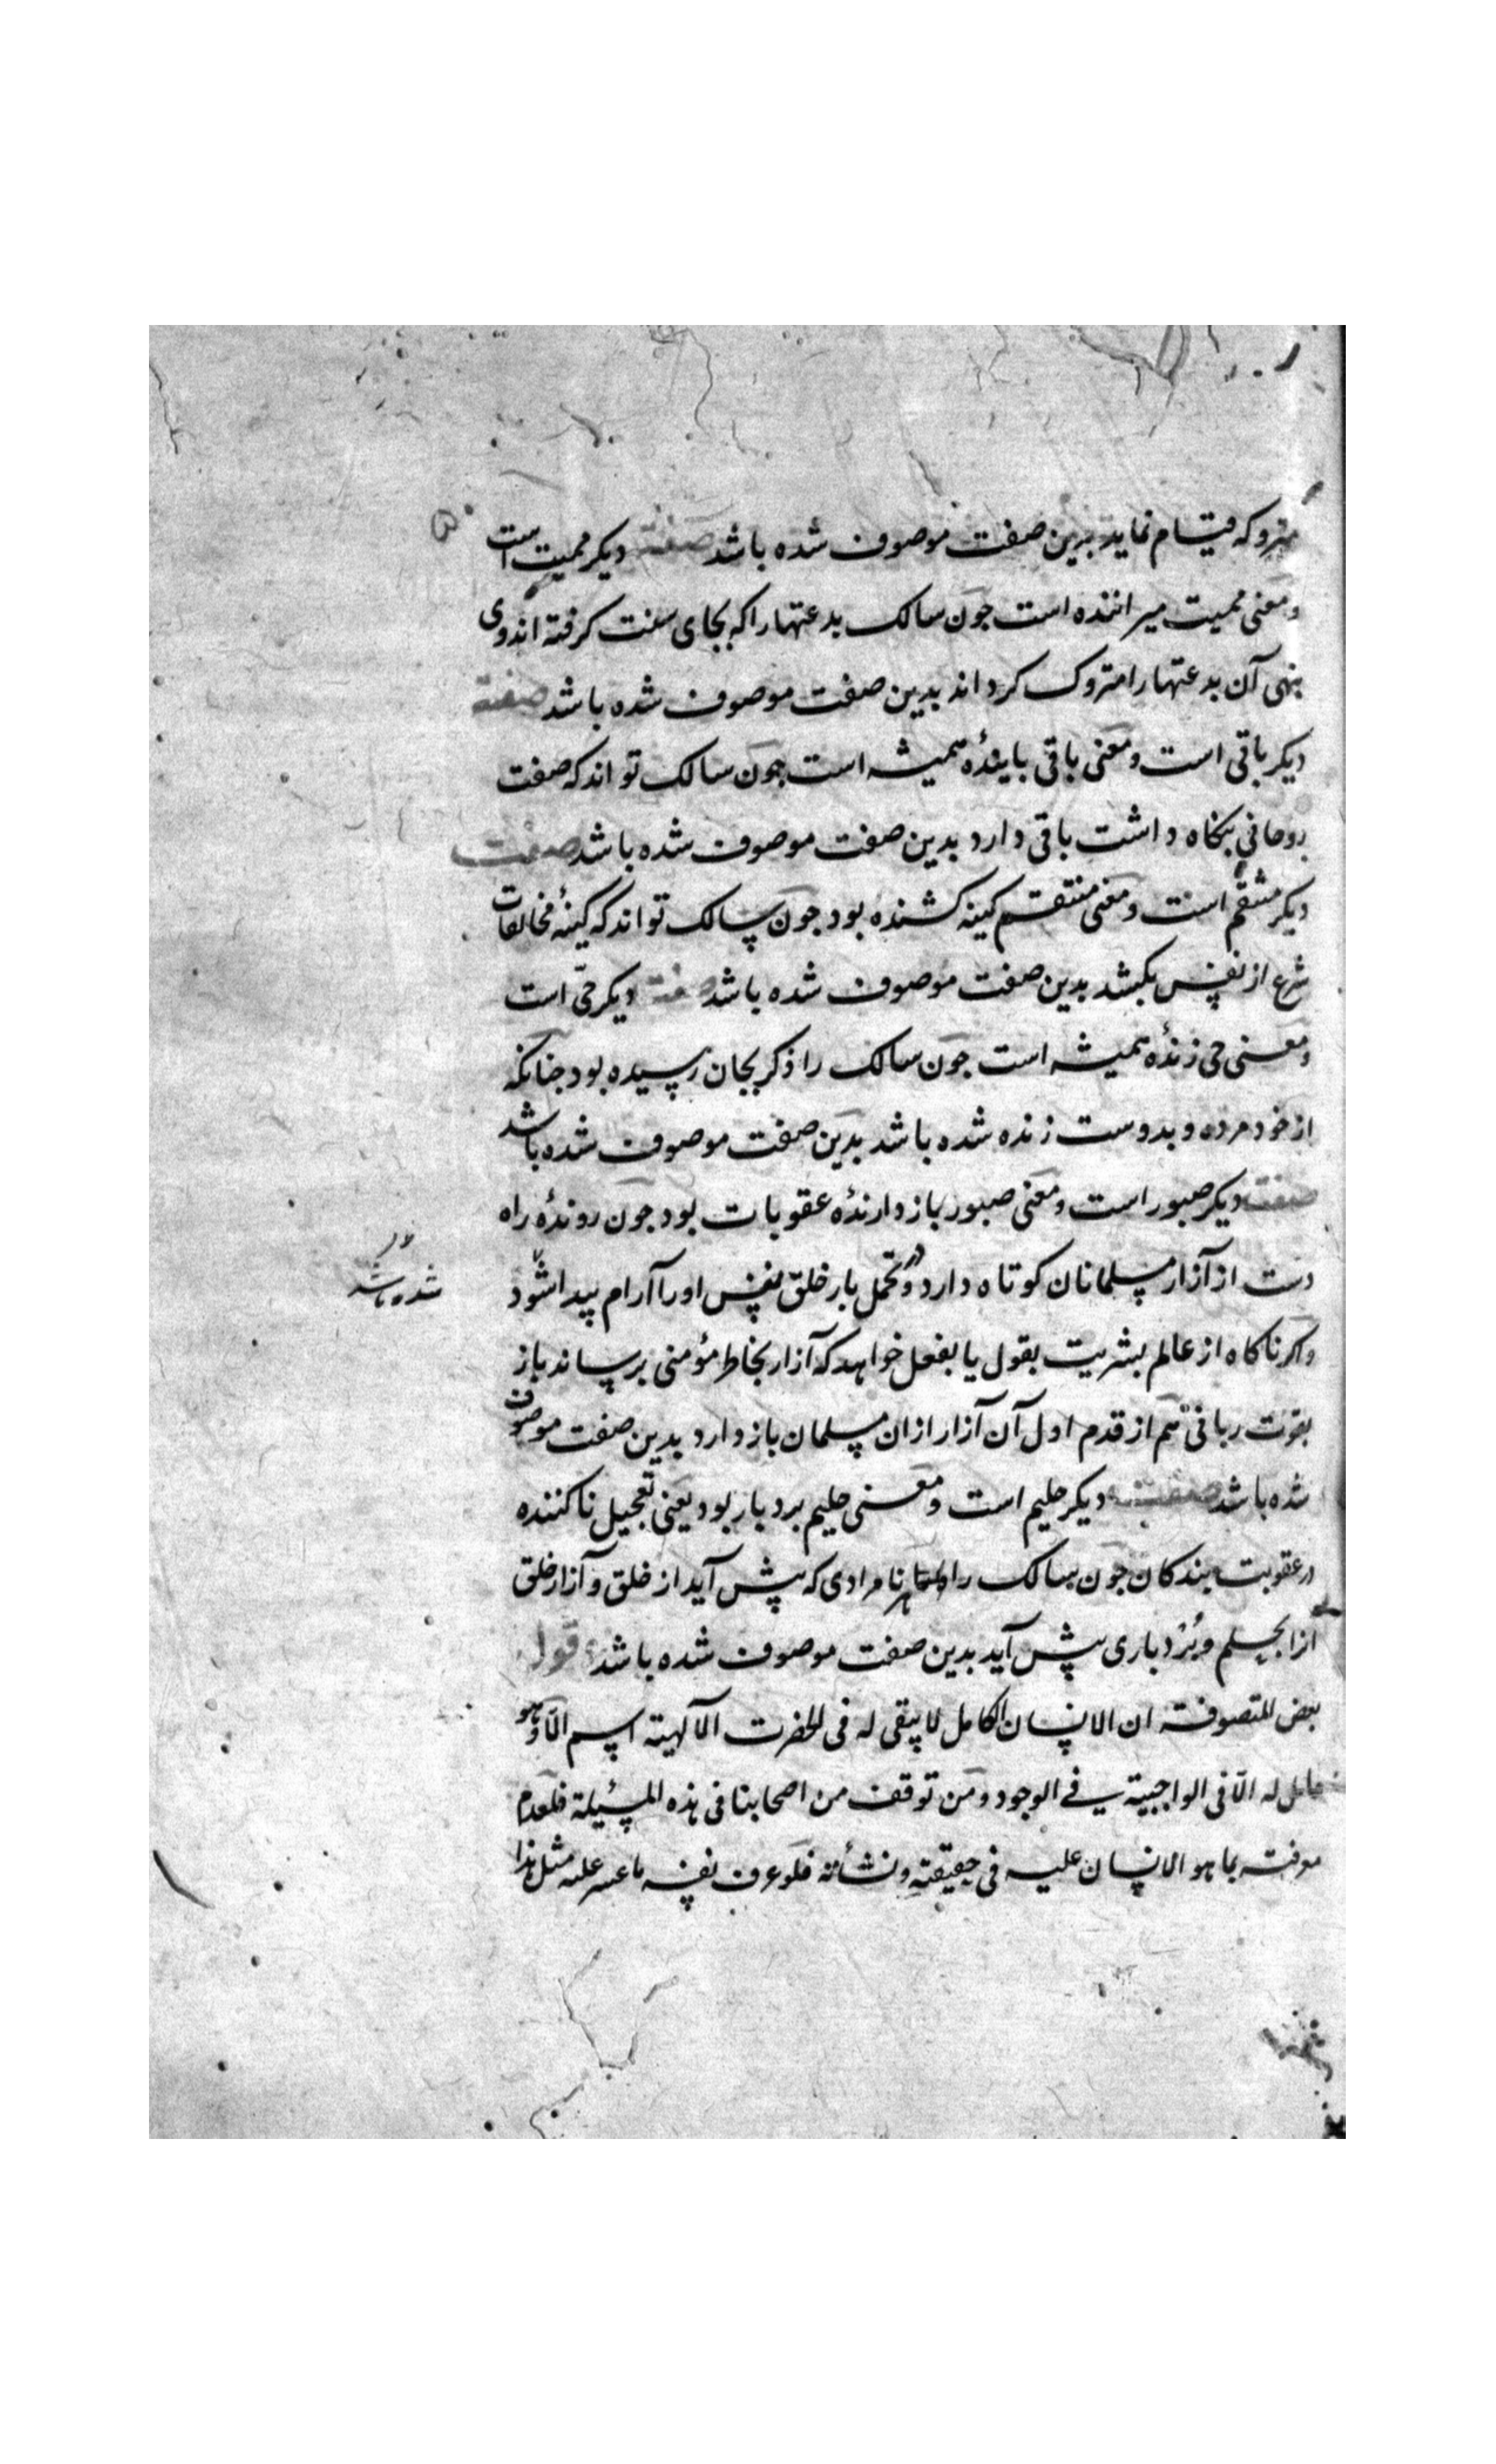 متروکه قیام نماید بدین صفت موصوف شده باشد صفت دیکر ممیت است
و معنی ممیت میراننده است جون سالک بدعتها را که بجای سنت کرفته اند وی
بنهی آن بدعتها را متروک کرداند بدین صفت موصوف شده باشد صفت
دیکر باقی است و معنی باقی پایندۀ همیشه است جون سالک تواند که صفت
روحانی بنکاه داشت باقی دارد بدین صفت موصوف شده باشد صفت
دیکر منتقم است و معنی منتقم کینه کشنده بود جون سالک تواند که کینۀ مخالفات
شرع از نفس بکشد بدین صفت موصوف شده باشد صفت دیکر حیّ است
و معنی حی زندۀ همیشه است جون سالک را ذکر بجان رسیده بود جنانکه
از خود مرده و بدوست زنده شده باشد بدین صفت موصوف شده باشد
صفت دیکر صبور است و معنی صبور بازدارندۀ عقوبات بود جون روندۀ راه
دست از آزار مسلمانان کوتاه دارد و در تحمل بار خلق نفس او را آرام پیدا شود
شده باشد
واکر ناکاه از عالم بشریت بقول یا بفعل خواهد که آزار بخاطر مؤمنی برساند باز
بقوت ربانی هم از قدم اول آن آزار ازان مسلمان بازدارد بدین صفت موصوف
شده باشد صفت دیکر حلیم است و معنی حلیم بردبار بود یعنی تعجیل ناکننده
در عقوبت بندکان جون سالک را هر نامرادی که پیش آید از خلق و آزار خلق
آنرا بحلم و بُردباری پیش آید بدین صفت موصوف شده باشد قول
بعض المتصوفة ان الانسان الکامل لا یبقی له فی الحضرت الآلهیة اسم الّا وهو
حامل له الّا فی الواجبیة فی الوجود و من توقف من اصحابنا فی هذه المسئیلة فلعدم
معرفته بما هو الانسان علیه فی حقیقته و نشأته فلو عرف نفسه ما عسر علیه مثل هذا